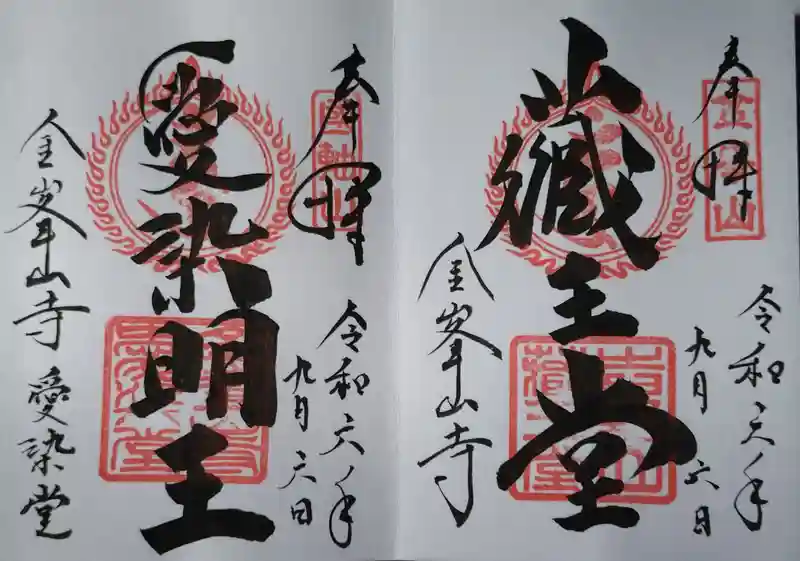 奉拝
令和六年
九月六日
蔵王堂
金峯山寺
奉拝
令和六年
九月六日
愛染明王
金峯山寺 愛染堂